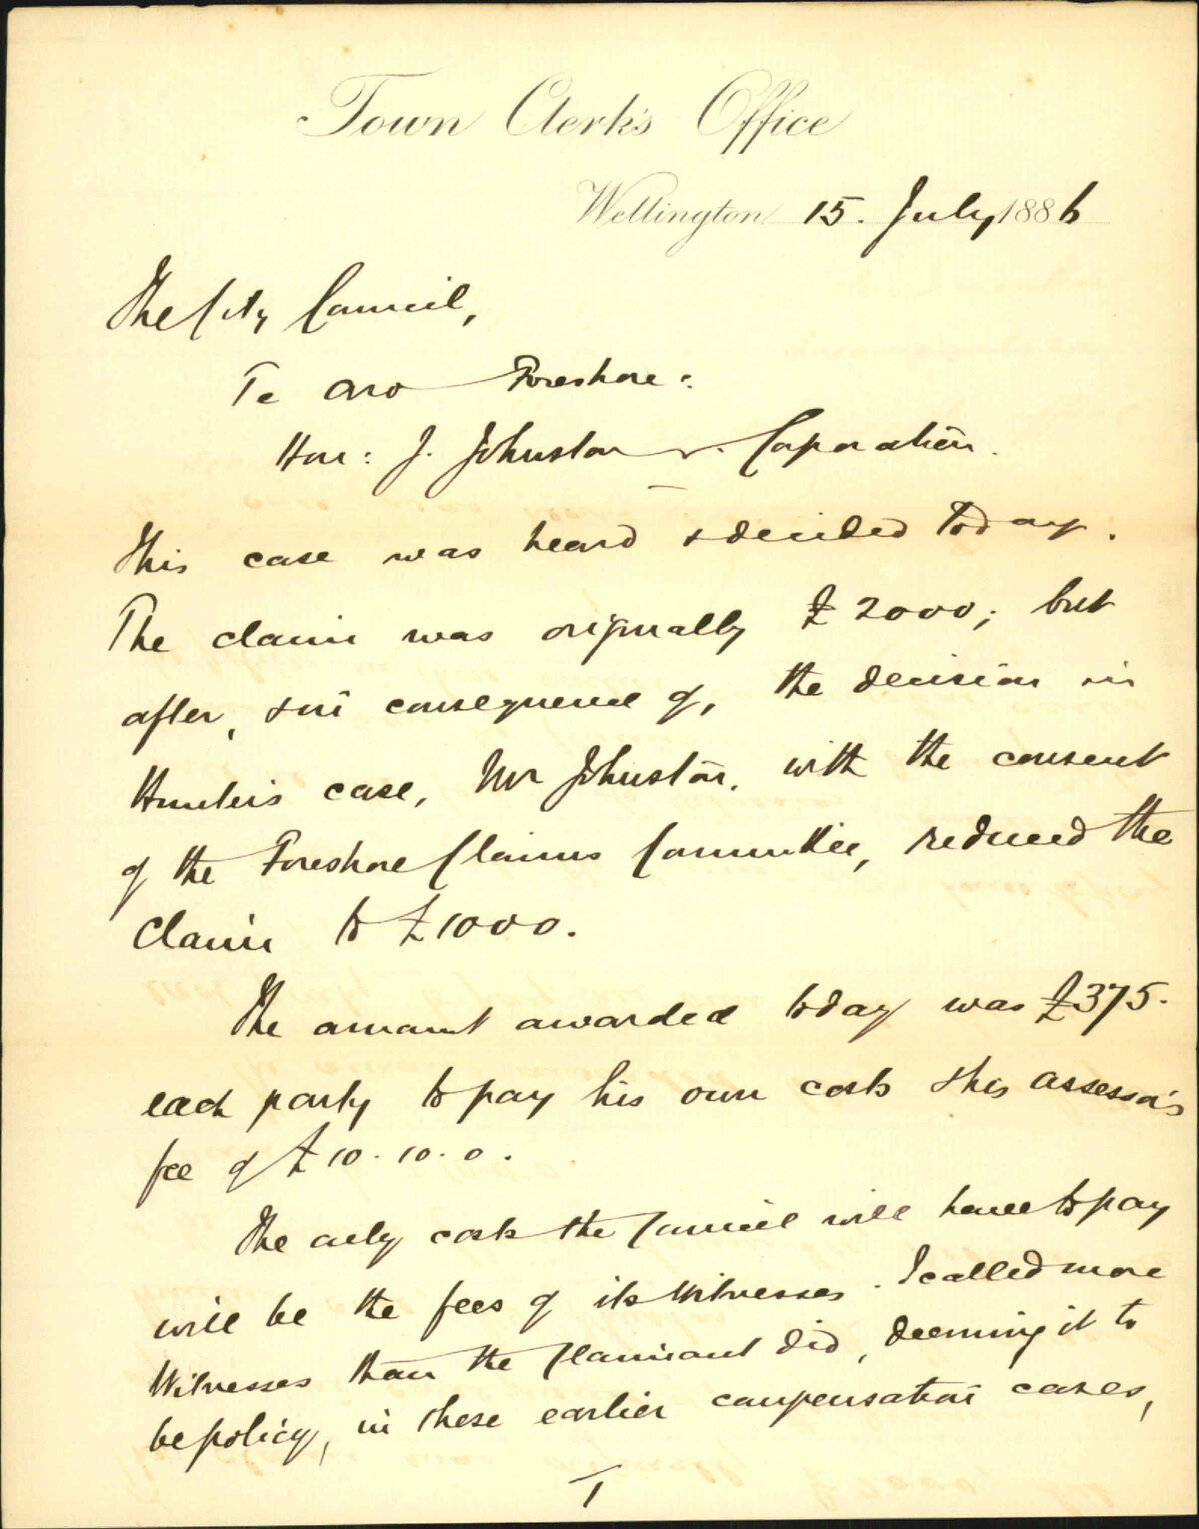 Town Clerk's Office
Wellington 15. July 1886
The City Council,
Te Aro Foreshore:
Hon: J. Johnston v. Corporation.
This case was heard & decided today.
The claim was originally £2000; but
after, & in consequence of, the decision in
Hunter's case, Mr Johnston, with the consent
of the Foreshore Claims Committee, reduced the
claim to £1000.
The amount awarded today was £375.
each party to pay his own costs & his assessor's
fee of £10.10.0.
The only costs the Council will have to pay
will be the fees of its witnesses. I called more
witnesses than the Claimant did, deeming it to
be policy, in these earlier compensation cases,